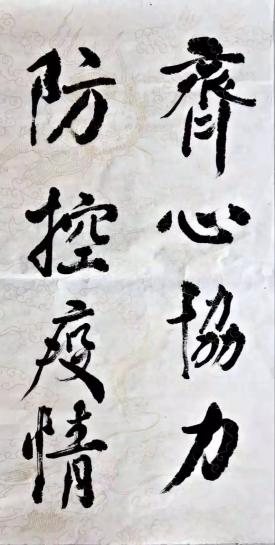 齊心協力
防控疫情